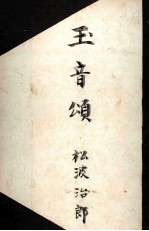 玉音頌
松波治郎